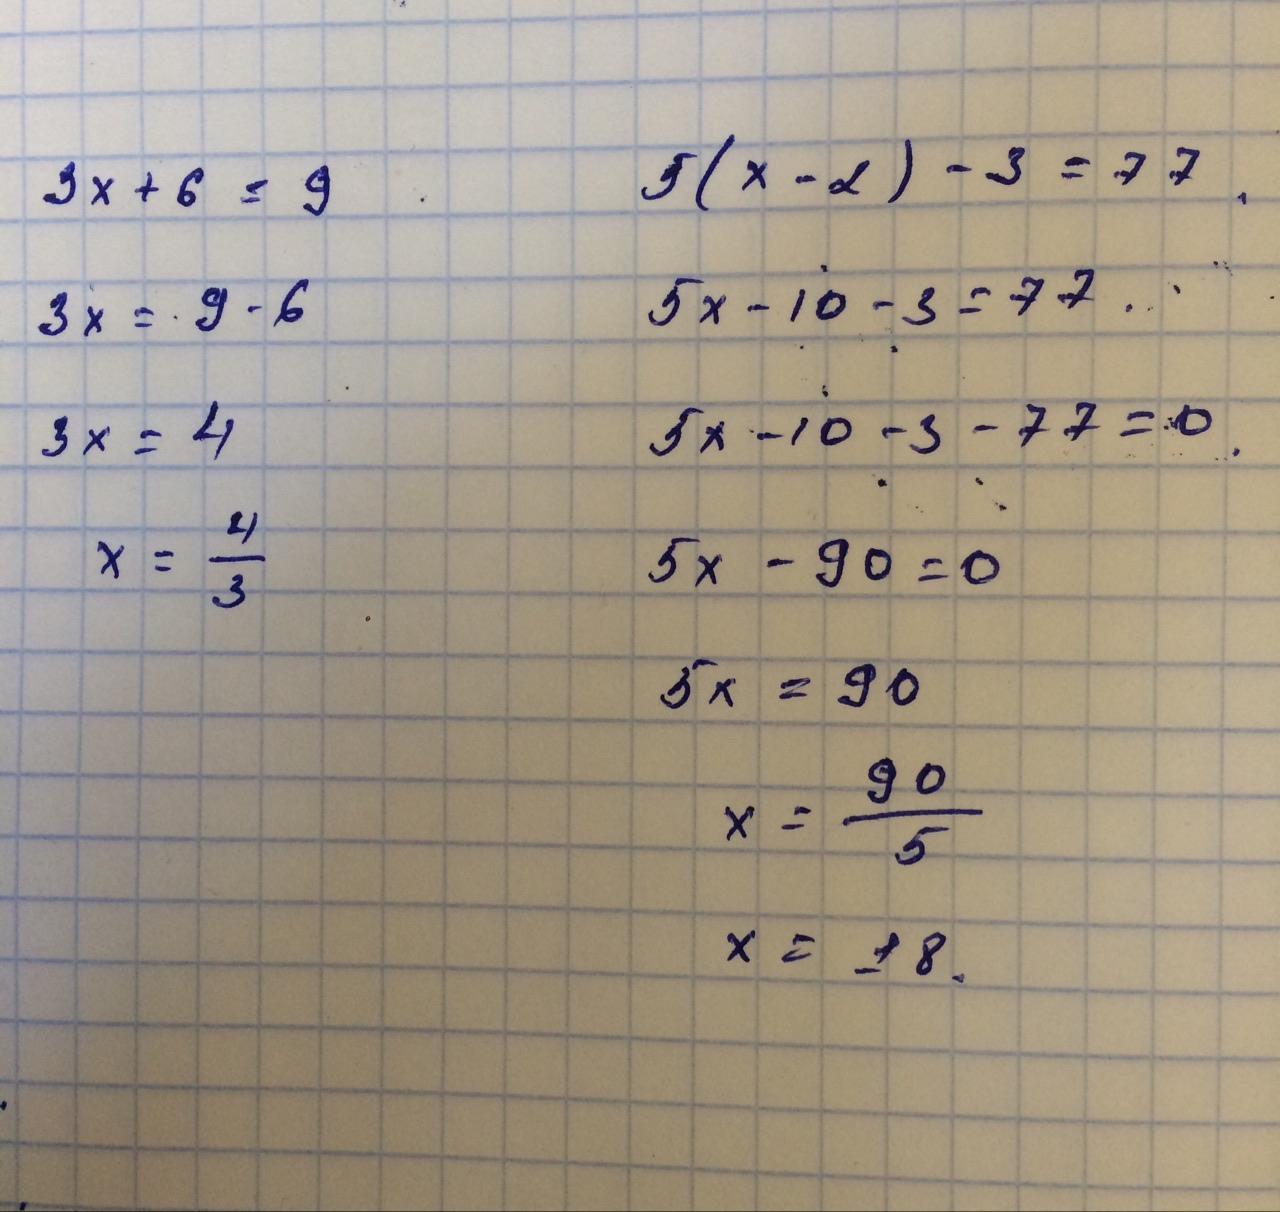 3x + 6 = 9
3x = 9 - 6
3x = 4
x = 4/3
5(x - 2) - 3 = 77
5x - 10 - 3 = 77
5x - 10 - 3 - 77 = 0
5x - 90 = 0
5x = 90
x = 90/5
x = 18.